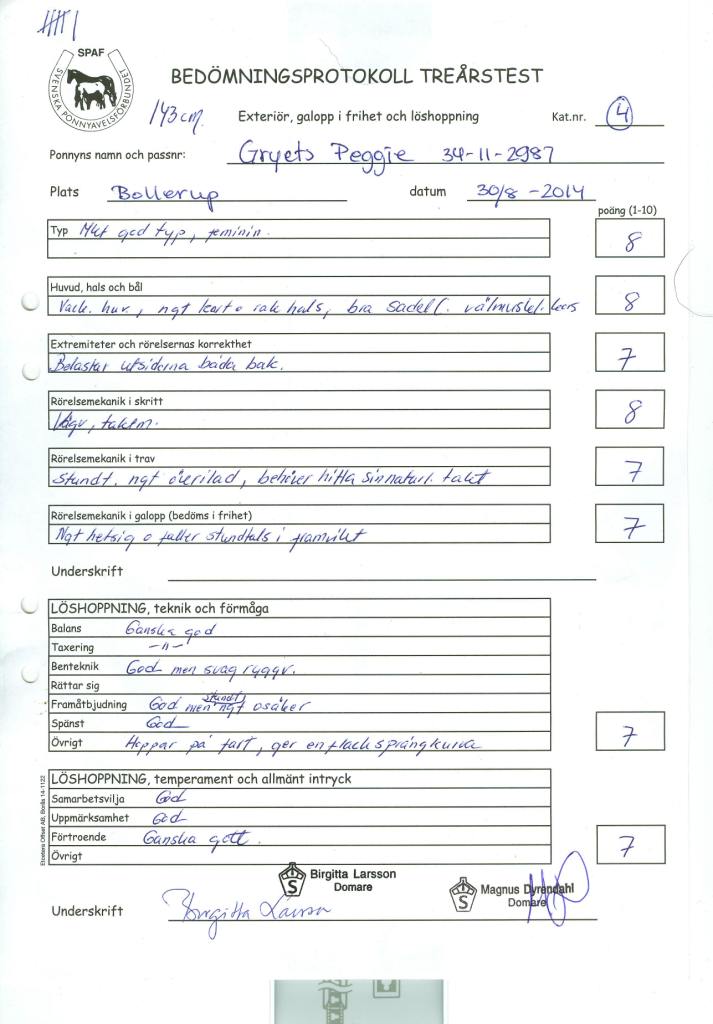 SPAF
SVENSKA PONNYAVELSFÖRBUNDET
BEDÖMNINGSPROTOKOLL TREÅRSTEST
143 cm.
Exteriör, galopp i frihet och löshoppning
Kat.nr. 4
Ponnyns namn och passnr: Gryets Peggie 34-11-2987
Plats Bollerup datum 30/8 -2014
poäng (1-10)
Typ Mkt god typ, feminin. 8
Huvud, hals och bål
Vack. huv., ngt kort o rak hals, bra sadell. välmuskl. kors 8
Extremiteter och rörelsernas korrekthet
Belastar utsidorna båda bak. 7
Rörelsemekanik i skritt
taktm. 8
Rörelsemekanik i trav
Stundt. ngt överilad, behöver hitta sin naturl. takt 7
Rörelsemekanik i galopp (bedöms i frihet)
Ngt hetsig o faller stundtals i framvikt 7
Underskrift
LÖSHOPPNING, teknik och förmåga
Balans Ganska god
Taxering -"-
Benteknik God men svag ryggv.
Rättar sig
Framåtbjudning God men stundt ngt osäker
Spänst God
Övrigt Hoppar på fart, ger en flack språngkurva 7
LÖSHOPPNING, temperament och allmänt intryck
Samarbetsvilja God
Uppmärksamhet God
Förtroende Ganska gott. 7
Övrigt
Elanders Offset AB, Borås 14-1122
S Birgitta Larsson
Domare
S Magnus Dyrendahl
Domare
Underskrift Birgitta Larsson